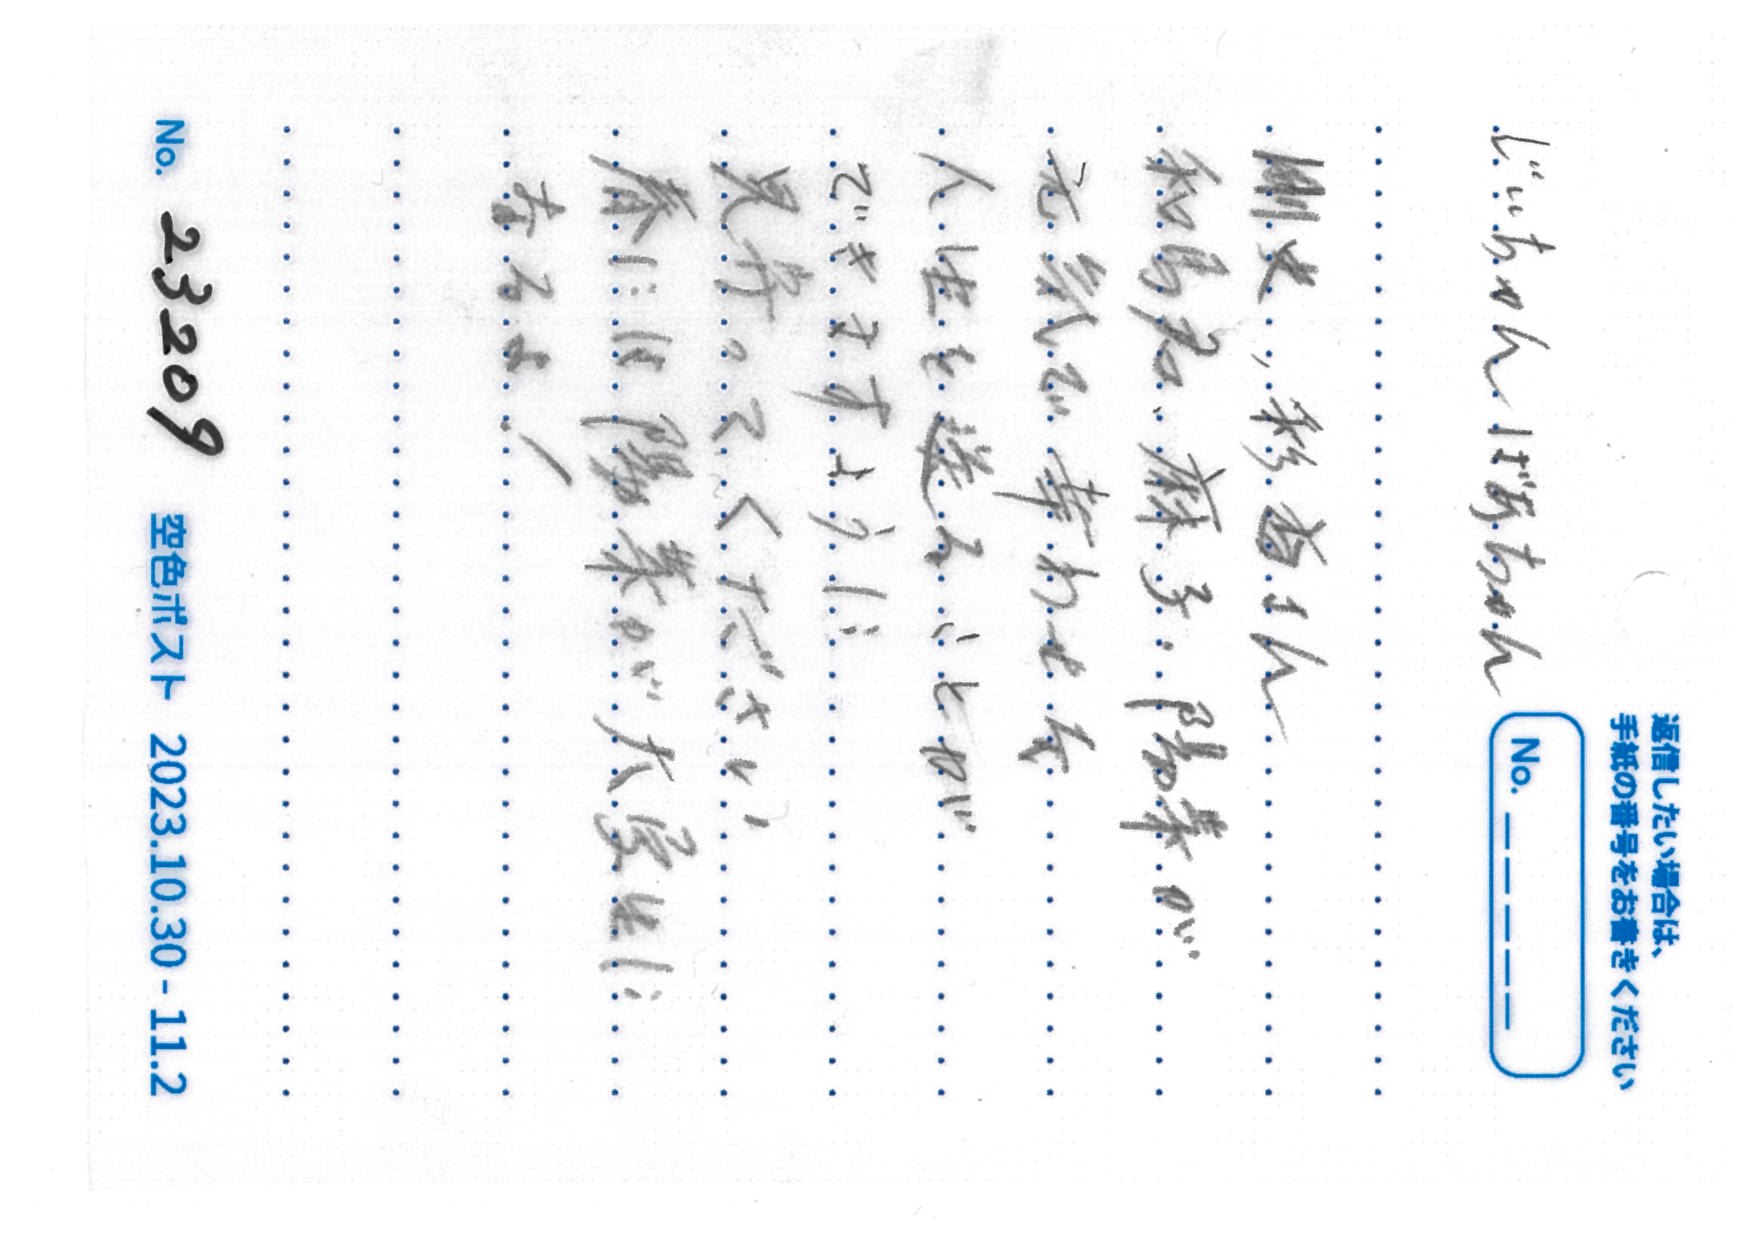 返信したい場合は、
手紙の番号をお書きください
No.
じいちゃん ばあちゃん
剛史、彩香さん
和馬君、麻子、陽菜が
元気で幸わせな
人生を送ることが
できますように
見守ってください
春には陽菜が大学生に
なるよ!
No. 23209 空色ポスト 2023.10.30 - 11.2